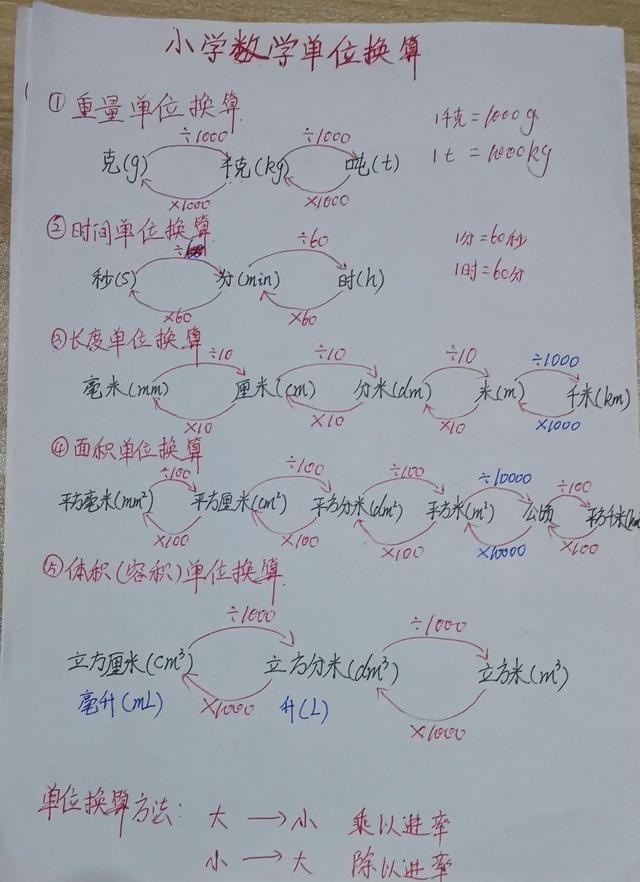 小学数学单位换算
①重量单位换算
÷1000 ÷1000 1千克=1000g
克(g) 千克(kg) 吨(t) 1t=1000kg
×1000 ×1000
②时间单位换算
÷ ÷60 1分=60秒
秒(s) 分(min) 时(h) 1时=60分
×60 ×60
③长度单位换算
÷10 ÷10 ÷10 ÷1000
毫米(mm) 厘米(cm) 分米(dm) 米(m) 千米(km)
×10 ×10 ×10 ×1000
④面积单位换算
÷100 ÷100 ÷100 ÷10000 ÷100
平方毫米(mm²) 平方厘米(cm²) 平方分米(dm²) 平方米(m²) 公顷 平方千米(km
×100 ×100 ×100 ×10000 ×100
⑤体积(容积)单位换算
÷1000 ÷1000
立方厘米(cm³) 立方分米(dm³) 立方米(m³)
毫升(mL) ×1000 升(L) ×1000
单位换算方法: 大→小 乘以进率
小→大 除以进率